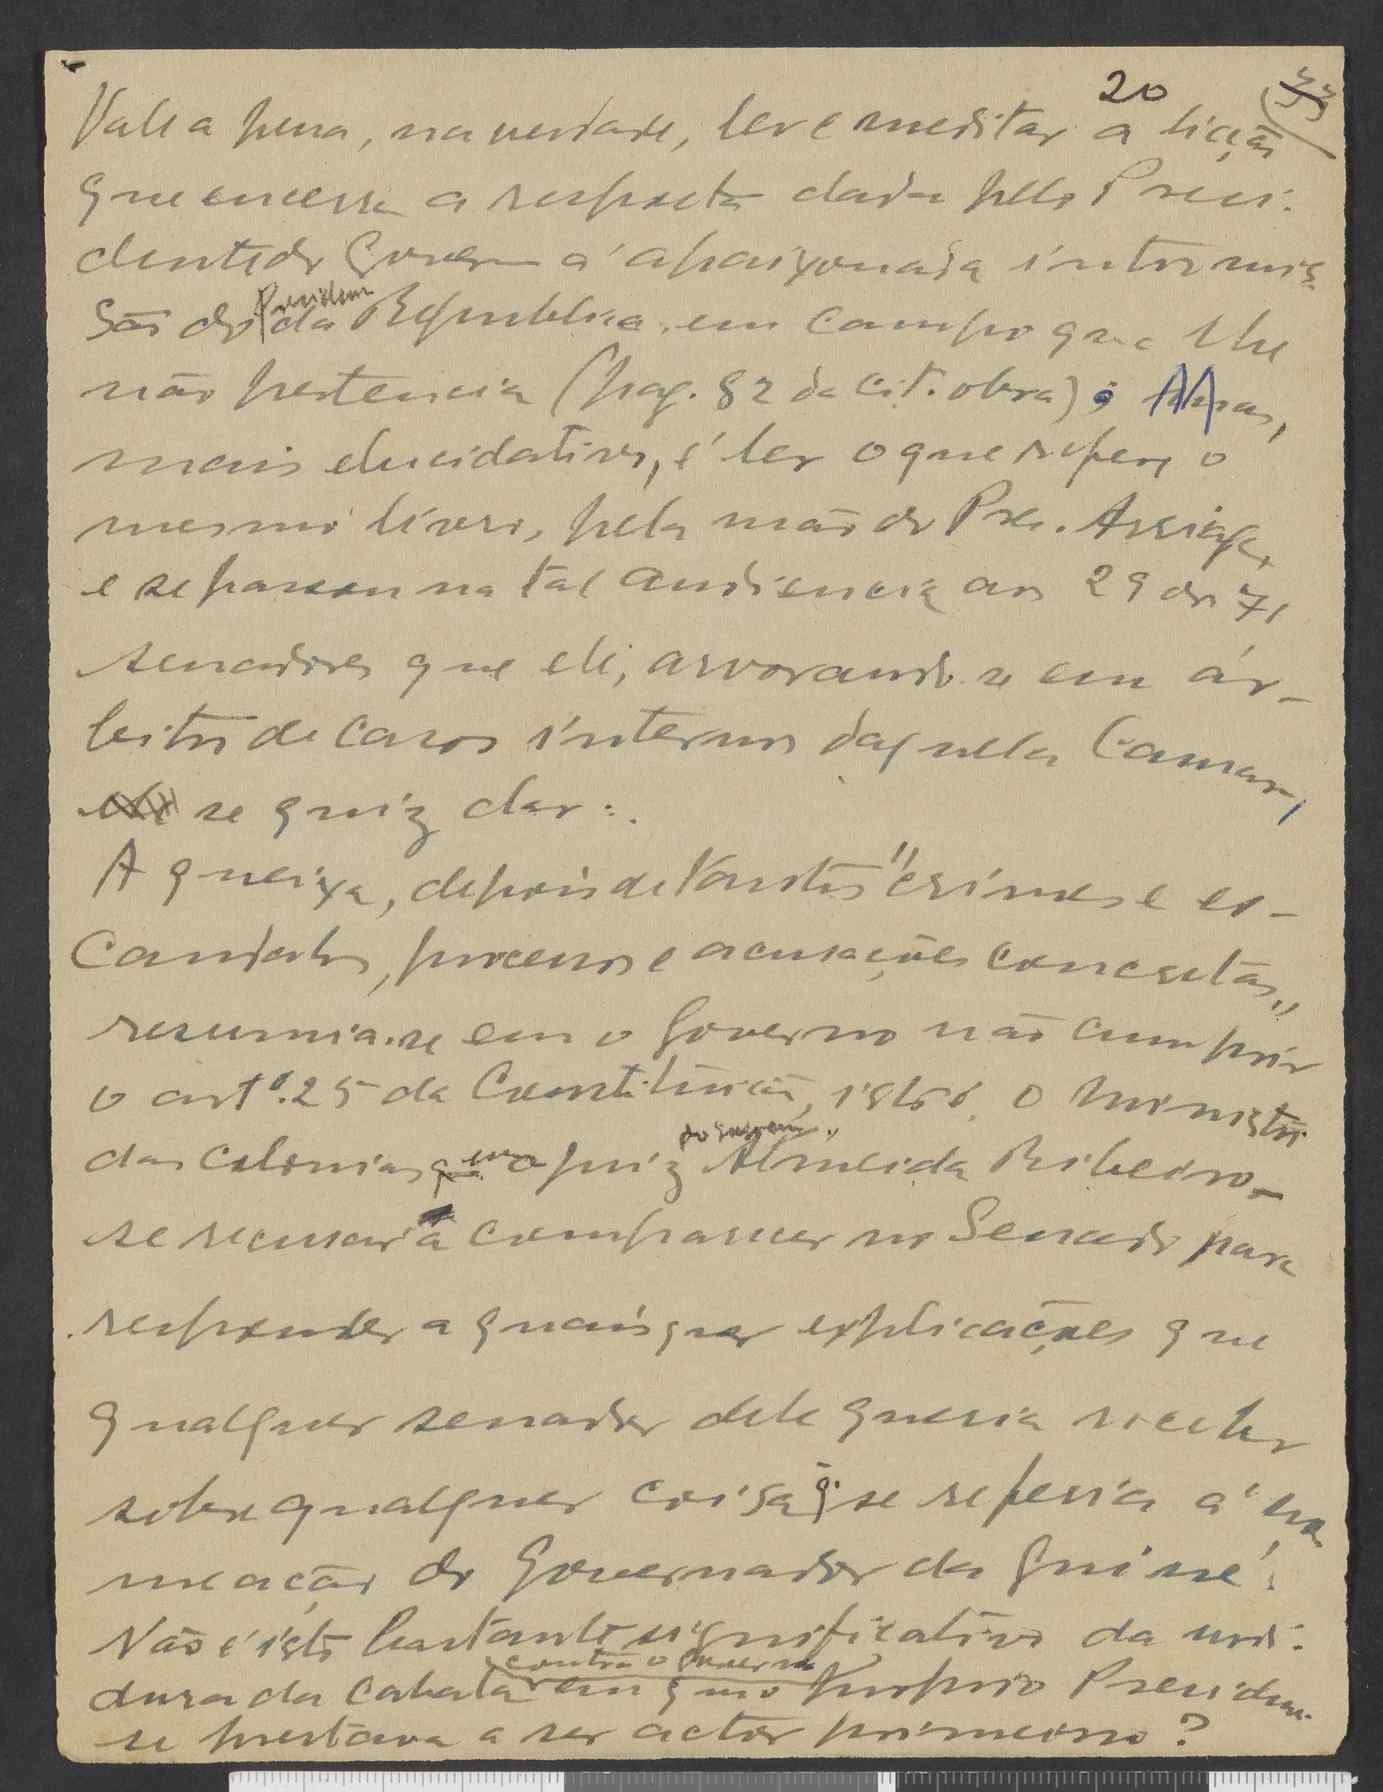 20
33
Vale a pena, na verdade, ler e meditar a lição
que encerra a resposta dada pelo Presi-
dente do Governo á apaixonada intromis-
são do Presidente da Republica, em campo que lhe
não pertencia (pag. 82 da cit. obra); Mas,
mais elucidativo, é ler o que refere o
mesmo livro, pela mão do Pres. Arriaga,
e se passou na tal audiencia aos 29 dos 71
senadores que ele, arvorando-se em ár-
bitro de casos internos daquela Camara,
se quiz dar:
A queixa, depois de tantos "crimes e es-
candalos, processos e acusações concretas",
resumia-se em o Governo não cumprir
o artº. 25 da Constituição, isto é, o Ministro
das Colonias, era o juiz do Supremo, Almeida Ribeiro_
se recusar a comparecer no Senado para
responder a quaisquer explicações que
qualquer senador dele queria receber
sobre qualquer coisa q. se referia á no
meação do Governador da Guiné!
Não é isto bastante significativo da urdi-
dura da cabala contra o governo em que o proprio Presidente
se prestava a ser actor primeiro?